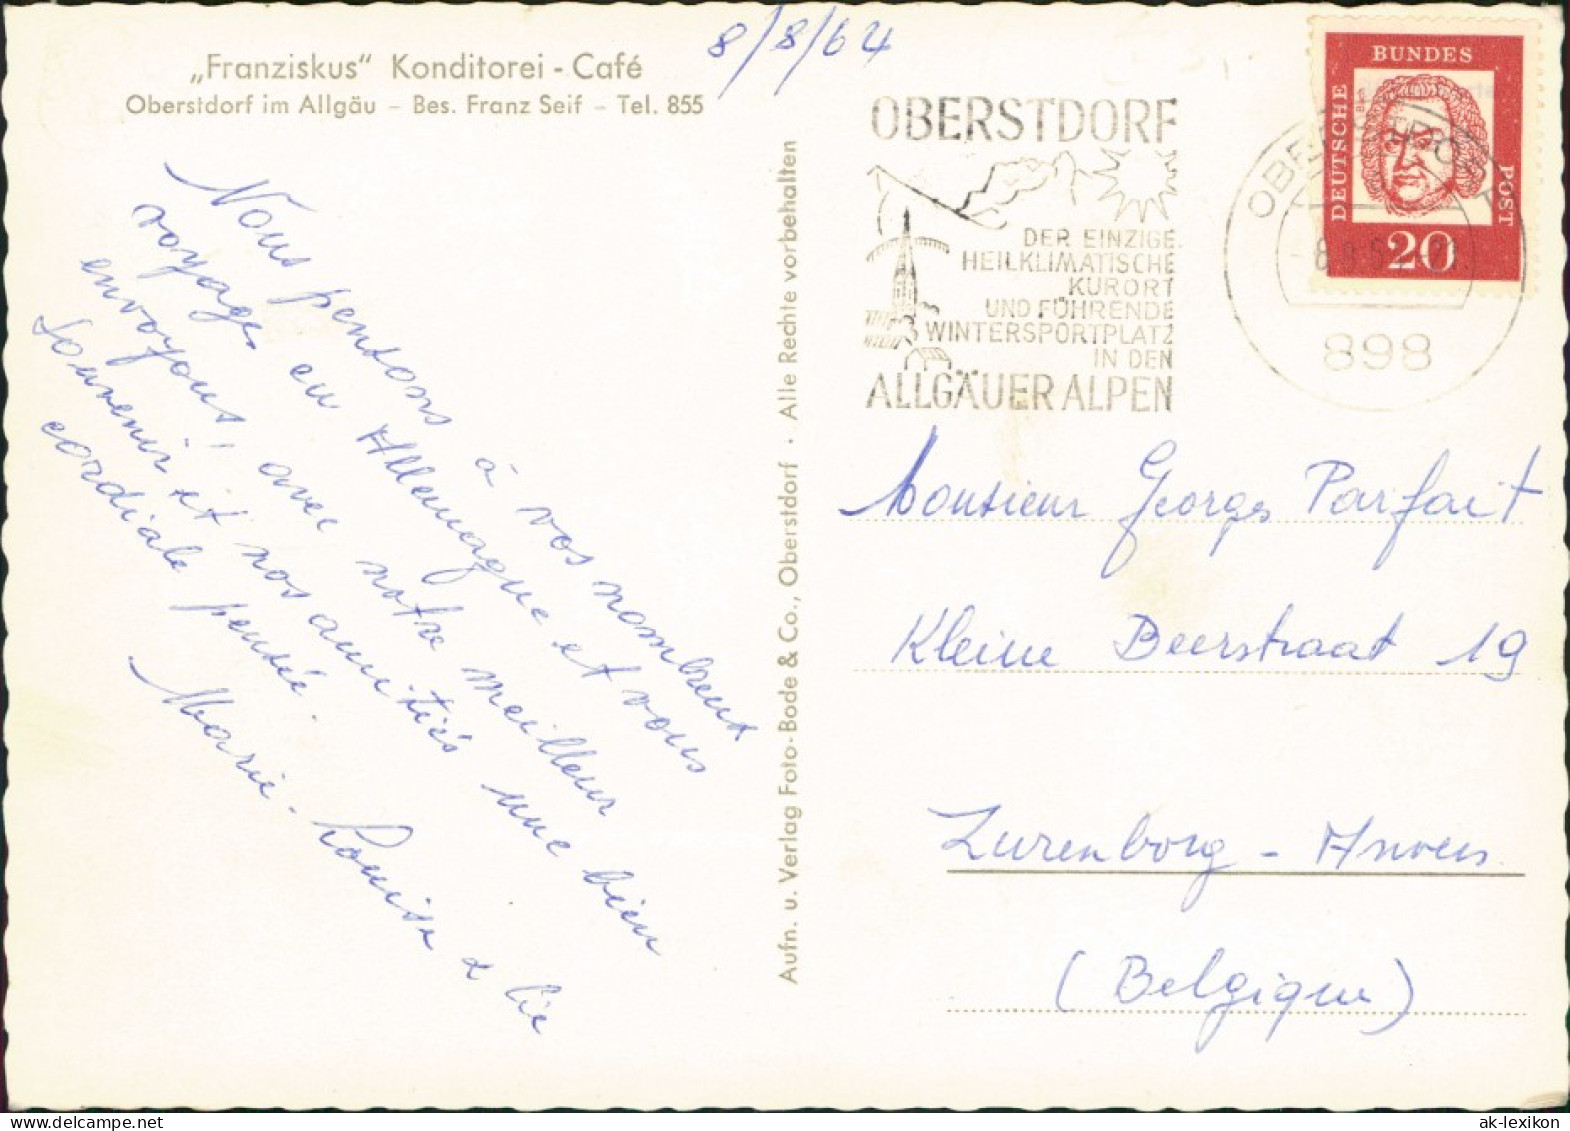 „Franziskus“ Konditorei - Café
Oberstdorf im Allgäu – Bes. Franz Seif – Tel. 855
8/8/64
Nous pensons à vos nombreux
voyages en Allemagne et vous
envoyons, avec notre meilleur
souvenir et nos amitiés une bien
cordiale pensée.
Marie-Louise & Lie
Aufn. u. Verlag Foto-Bode & Co., Oberstdorf · Alle Rechte vorbehalten
OBERSTDORF
DER EINZIGE
HEILKLIMATISCHE
KURORT
UND FÜHRENDE
WINTERSPORTPLATZ
IN DEN
ALLGÄUER ALPEN
OBERSTDORF
898
DEUTSCHE
BUNDES
POST
20
Monsieur Georges Parfait
Kleine Beerstraat 19
Zurenborg - Anvers
(Belgique)
ak-lexikon